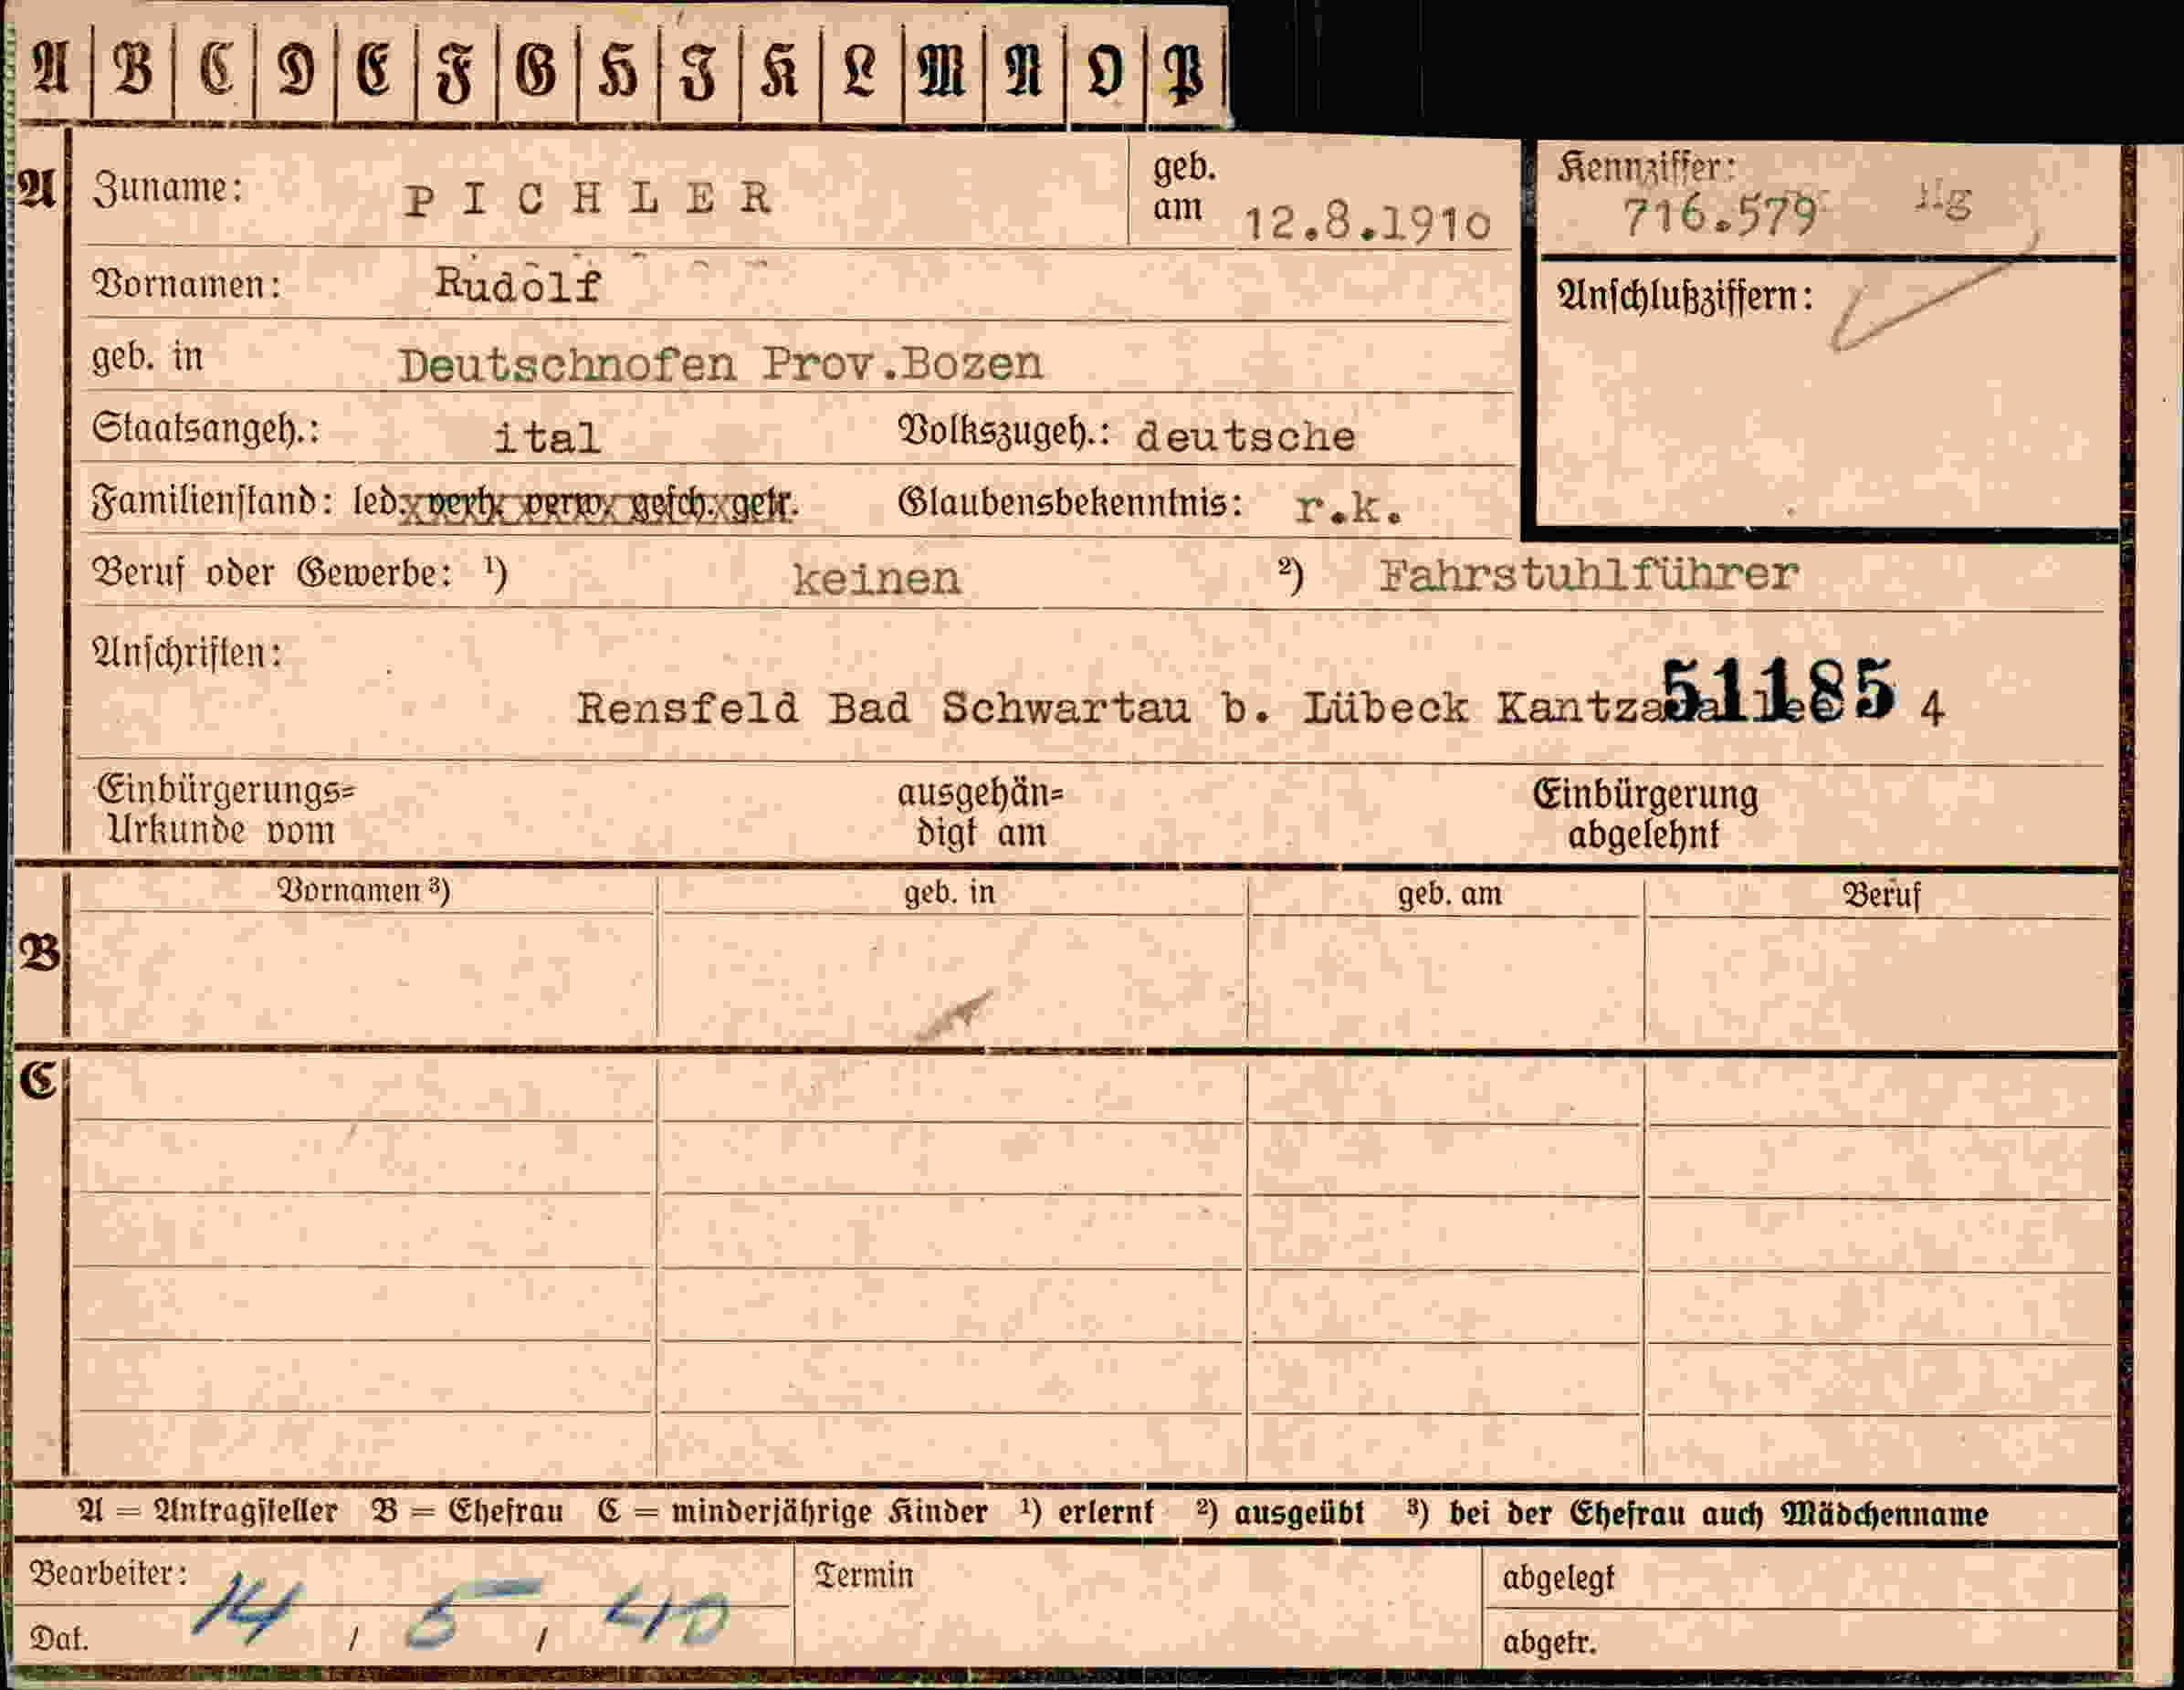 A B C D E F G H J K L M N O P
A Zuname: PICHLER geb. am 12.8.1910 Kennziffer: 716.579
Vornamen: Rudolf Anschlußziffern:
geb. in Deutschnofen Prov.Bozen
Staatsangeh.: ital Volkszugeh.: deutsche
Familienstand: led. verh. verw. gesch. getr. Glaubensbekenntnis: r.k.
Beruf oder Gewerbe: ¹) keinen ²) Fahrstuhlführer
Anschriften:
Rensfeld Bad Schwartau b. Lübeck 51185 4
Einbürgerungs= ausgehän= Einbürgerung
Urkunde vom digt am abgelehnt
Vornamen ³) geb. in geb. am Beruf
B
C
A = Antragsteller B = Ehefrau C = minderjährige Kinder ¹) erlernt ²) ausgeübt ³) bei der Ehefrau auch Mädchenname
Bearbeiter: Termin abgelegt
Dat. 14 / 5 / 40 abgetr.